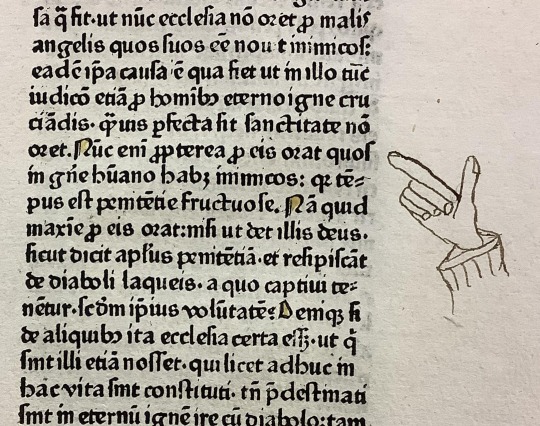 sa q̄ fit· ut nūc ecclesia nō oret ꝓ malis
angelis quos suos eē nouit inimicos:
eadē ip̄a causa ē qua fiet ut in illo tūc
iudicō etiā ꝓ homībꝰ eterno igne cru
ciādis· qͣuis ꝑfecta sit sanctitate nō
oret. Nūc enī ꝓpterea ꝓ eis orat quos
in gn̄e hūano habꝫ inimicos: qꝛ tē⸗
pus est penitētie fructuose. Nā quid
maxīe ꝓ eis orat: nisi ut det illis deus·
sicut dicit apl̄us penitētiā· et resipiscāt
de diaboli laqueis· a quo captiui te⸗
nētur· scd̄m ip̄ius volūtatē? Deniqꝫ si
de aliquibꝰ ita ecclesia certa eēt· ut q̄
sint illi etiā nosset· qui licet adhuc in
hāc vita sint constituti· tn̄ p̄destinati
sint in eternū ignē ire cū diabolo: tam